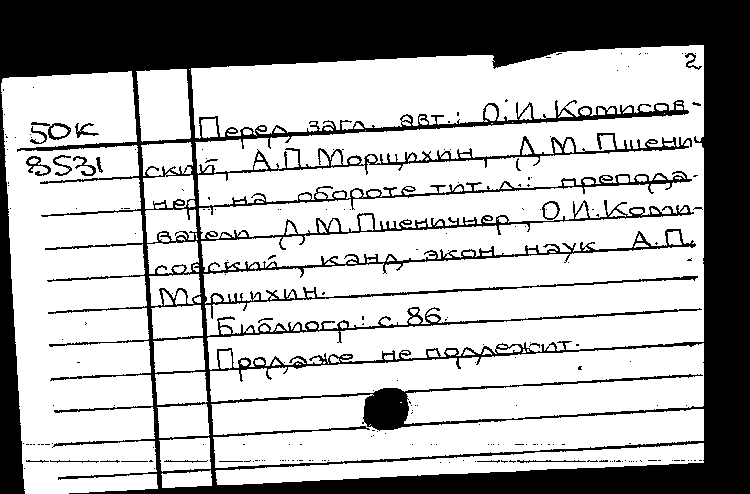 2
50К Перед загл. авт.: О.И.Комисов-
8531 ский, А.П.Морщихин, Д.М.Пшенич
нер; на обороте тит.л.: препода-
ватели Д.М.Пшеничнер, О.И.Коми-
совский, канд. экон. наук А.П.
Морщихин.
Библиогр.: с.86.
Продаже не подлежит.